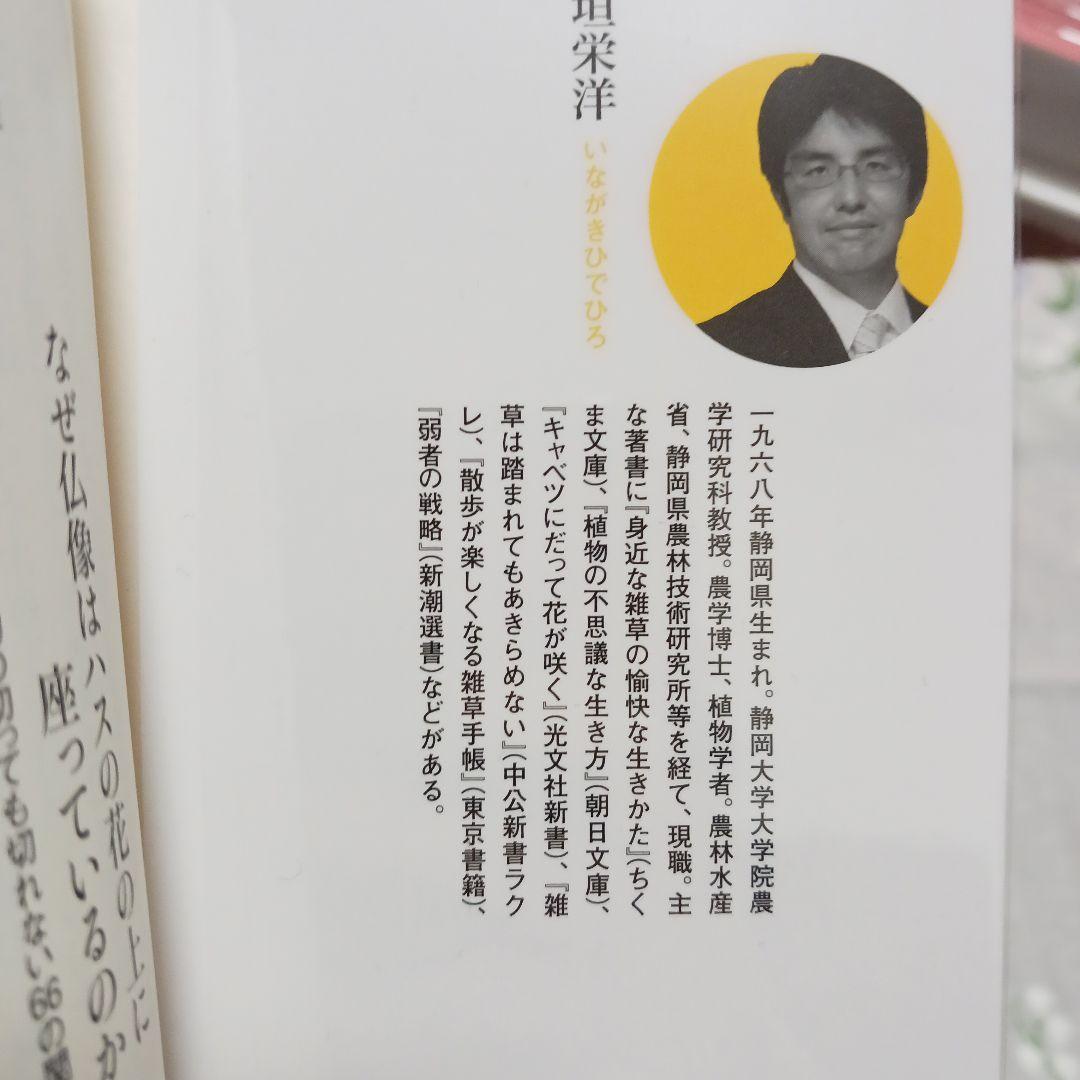 垣栄洋
いながきひでひろ
一九六八年静岡県生まれ。静岡大学大学院農
学研究科教授。農学博士、植物学者。農林水産
省、静岡県農林技術研究所等を経て、現職。主
な著書に『身近な雑草の愉快な生きかた』(ちく
ま文庫)、『植物の不思議な生き方』(朝日文庫)、
『キャベツにだって花が咲く』(光文社新書)、『雑
草は踏まれてもあきらめない』(中公新書ラク
レ)、『散歩が楽しくなる雑草手帳』(東京書籍)、
『弱者の戦略』(新潮選書)などがある。
なぜ仏像はハスの花の上に
座っているのか
切っても切れない66の